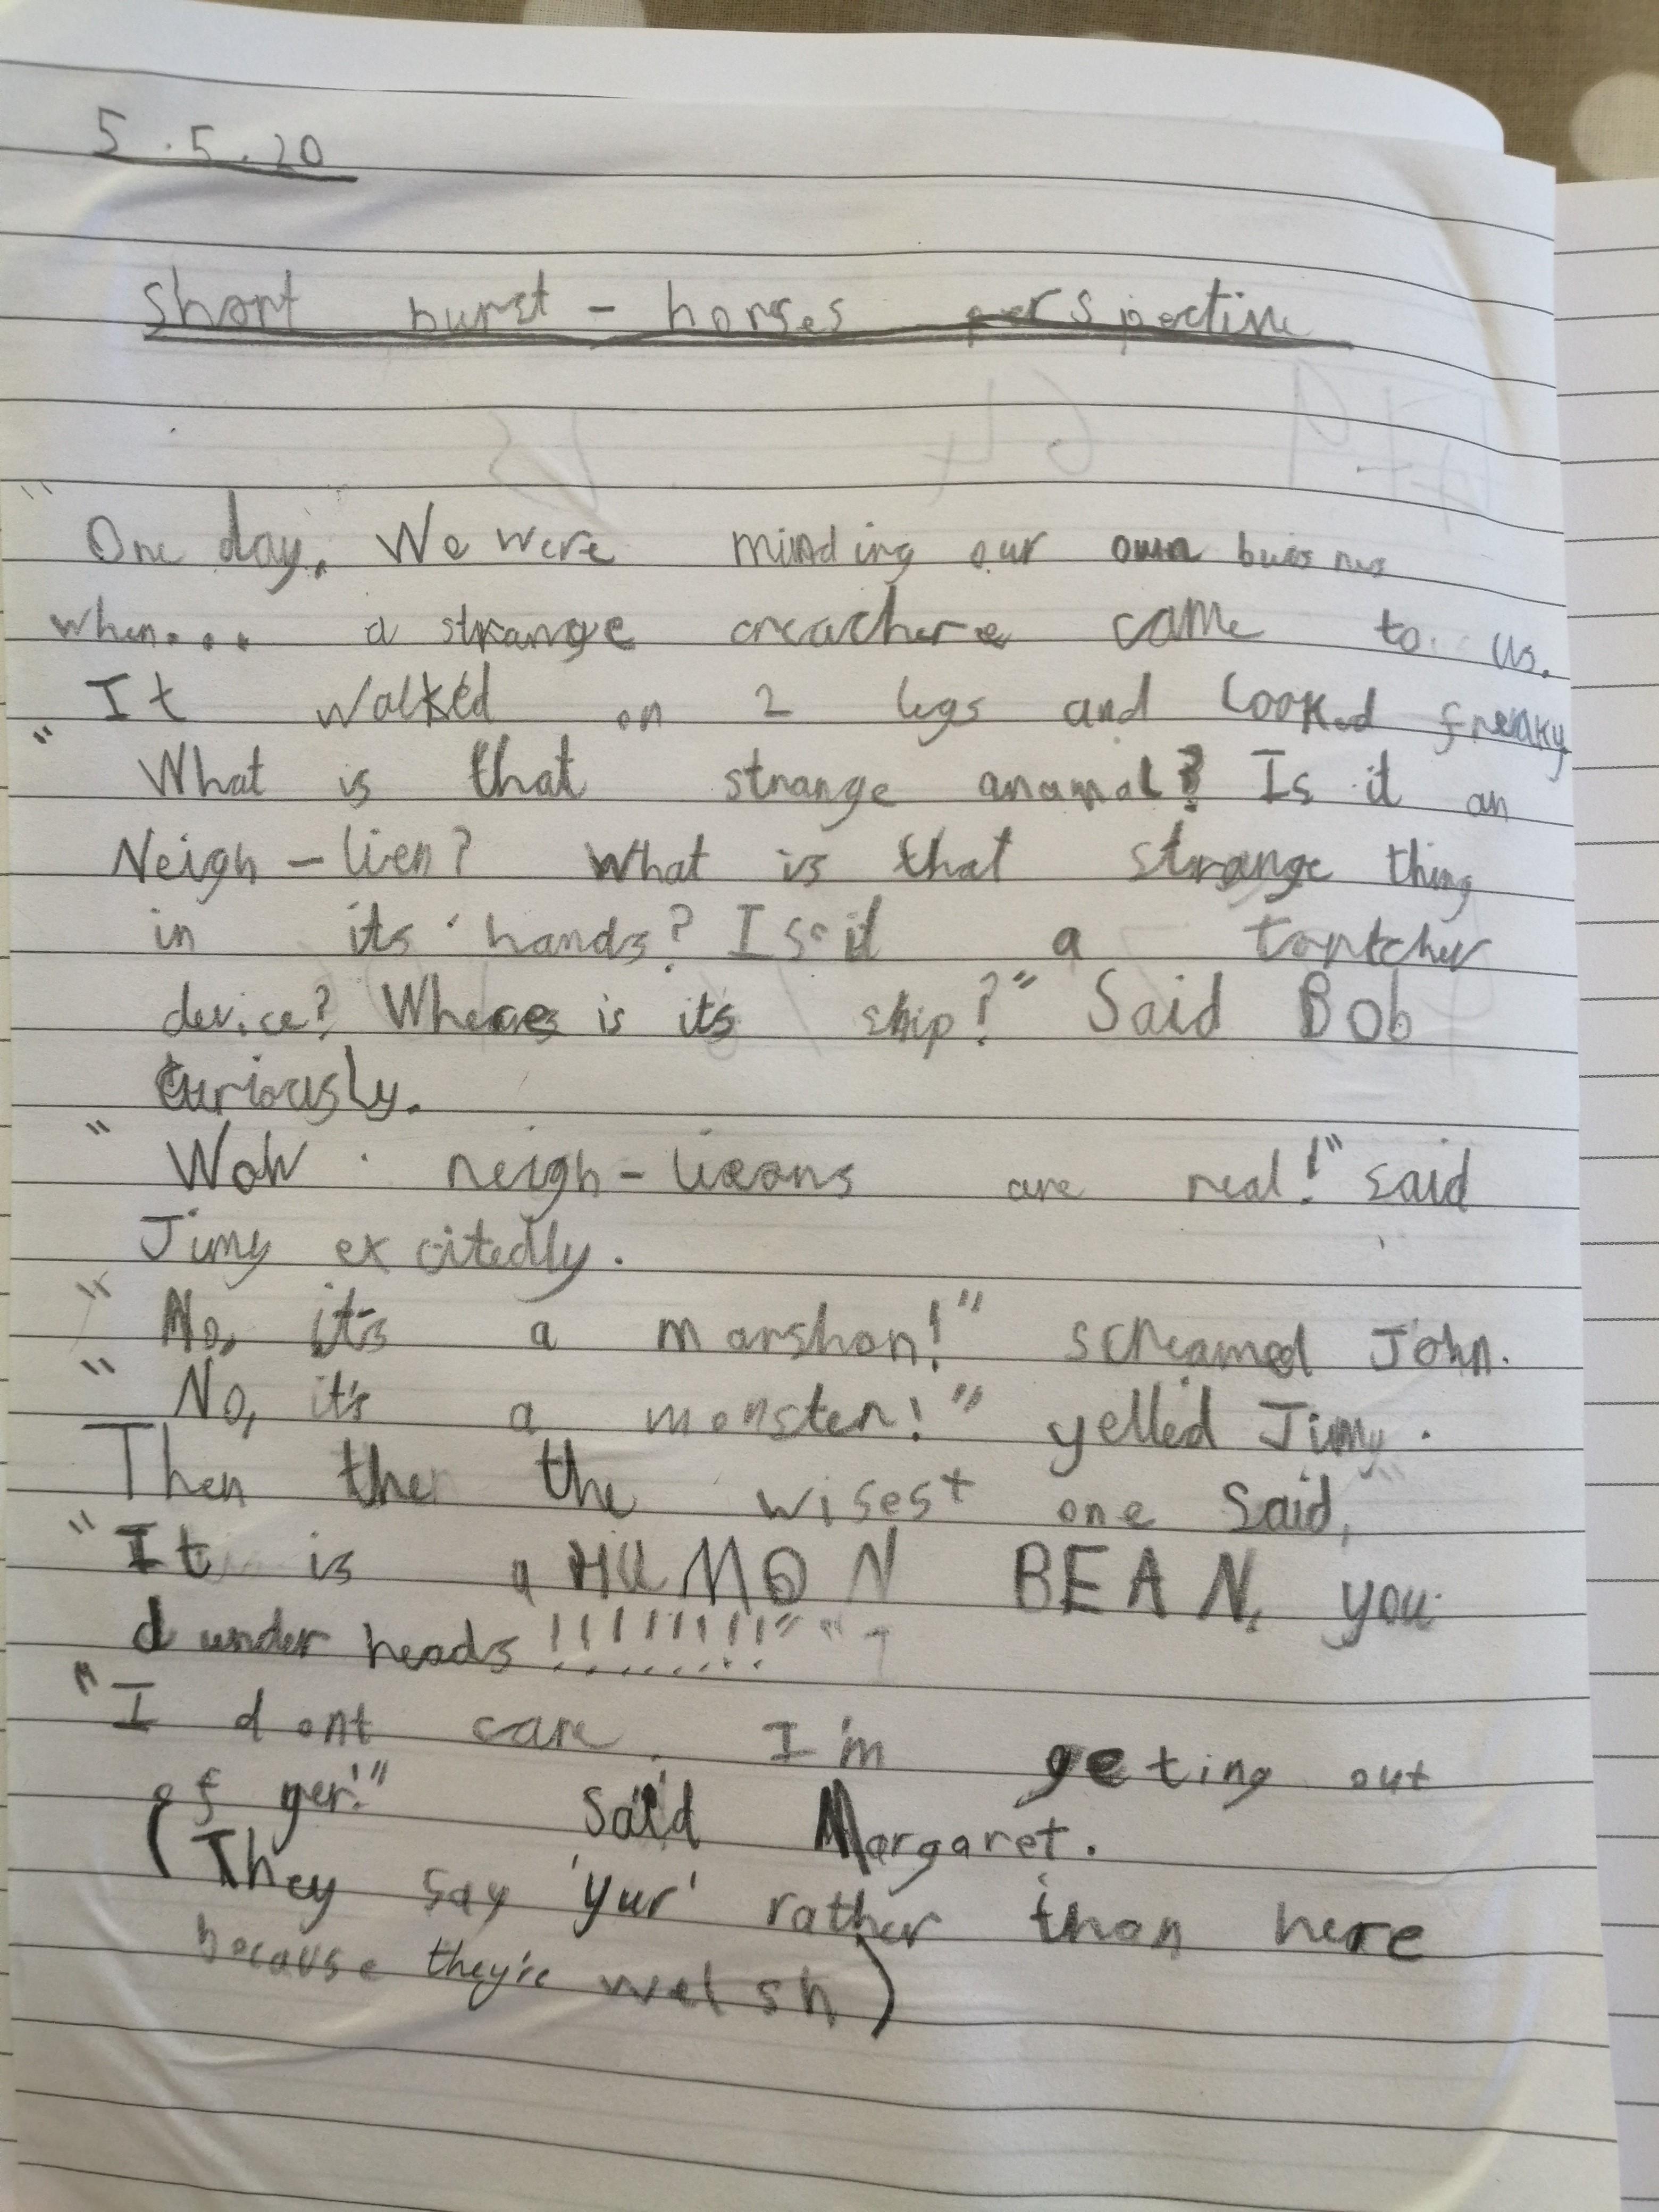 5.5.20
short burst - horses perspective
"One day," We were minding our own
when.... a strange creachere came to us.
It walked on 2 legs and looked freaky
"What is that strange anamal? Is it an
Neigh-lien? What is that strange thing
in its hands? Is it a tortcher
device? Where is its ship?" Said Bob
curiously.
"Wow neigh-lieans are real!" said
Jimy excitedly.
"No, it's a marshon!" screamed John.
"No, it's a monster!" yelled Jimy.
Then then the wisest one said,
"It is a HUMON BEAN, you
dunderheads!!!!!!!!!"
"I dont care. I'm geting out
of yer!" said Margaret.
(They say 'yur' rather than here
because they're welsh)